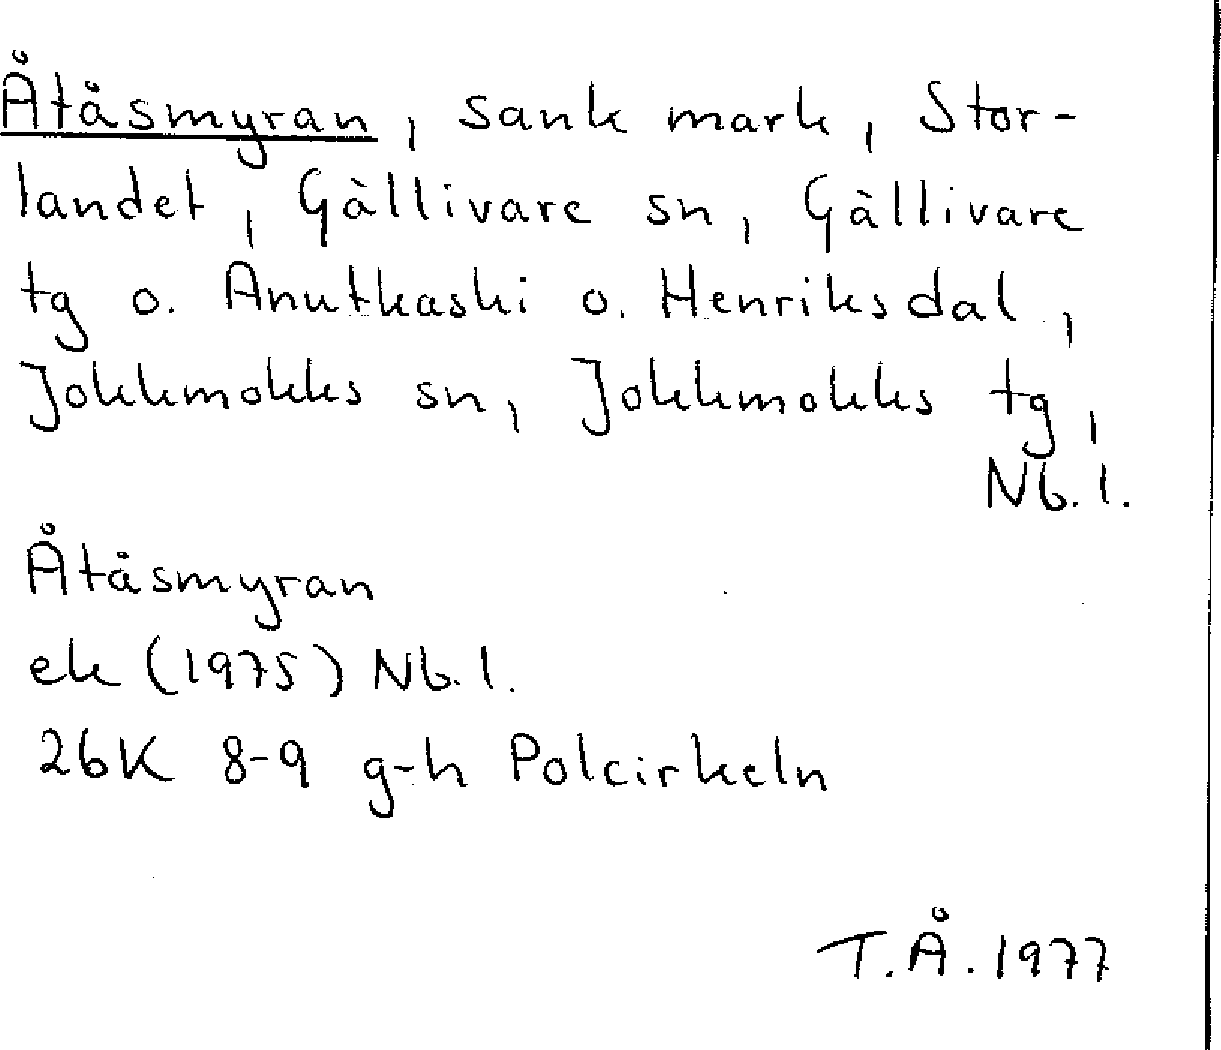 Åtåsmyran, sank mark, Stor-
landet, Gällivare sn, Gällivare
tg o. Anutkaski o. Henriksdal,
Jokkmokks sn, Jokkmokks tg,
Nb. l.
Åtåsmyran
ek (1975) Nb. l.
26K 8-9 g-h Polcirkeln
T.Å. 1977